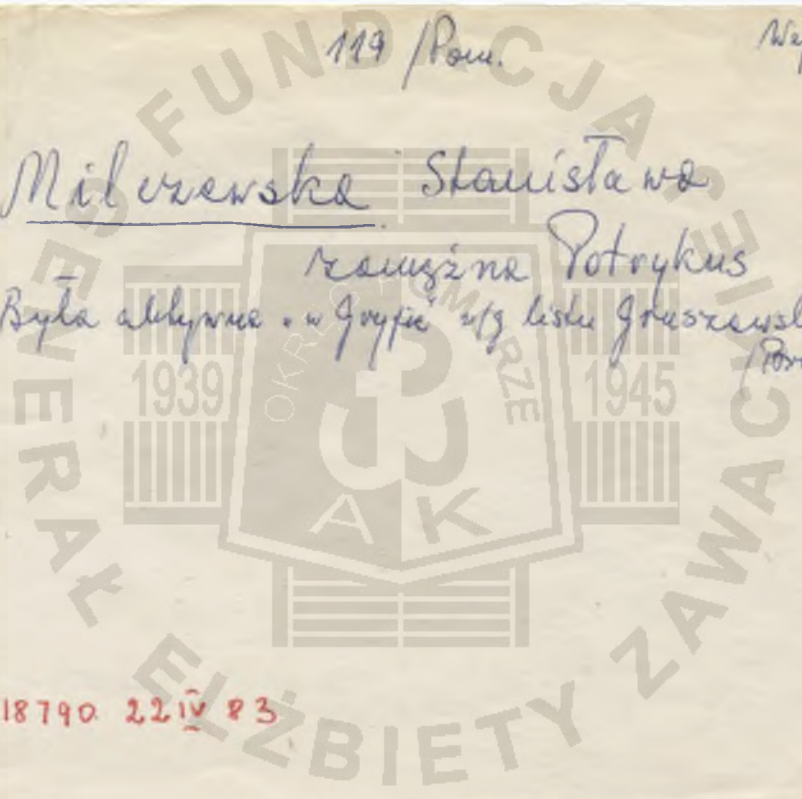 119 /Pom.
Milczewska Stanisława
zamężna Potrykus
Była aktywna "w Gryfie" w/g listu Gruszewsk
18790 22 IV 83
FUNDACJA GENERAŁ ELŻBIETY ZAWACKIEJ
OKRĘG POMORZE
1939 1945
AK